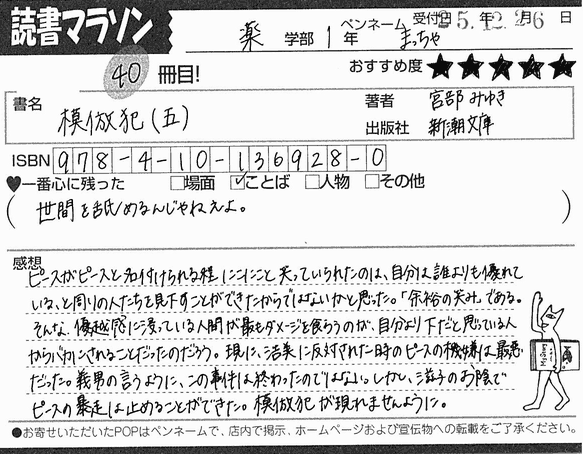 読書マラソン
薬 学部 1 年 ペンネーム まっちゃ 受付日 25.年12.月26日
40 冊目!
おすすめ度 ★★★★★
書名 模倣犯(五)
著者 宮部みゆき
出版社 新潮文庫
ISBN 978-4-10-136928-0
♥一番心に残った □場面 ☑ことば □人物 □その他
(世間を舐めるんじゃねえよ。)
感想
ピースがピースと名付けられる程にこにこと笑っていられたのは、自分は誰よりも優れて
いる、と周りの人たちを見下すことができたからではないかと思った。「余裕の笑み」である。
そんな、優越感に浸っている人間が最もダメージを食らうのが、自分より下だと思っている人
からバカにされることだったのだろう。現に、浩美に反対された時のピースの機嫌は最悪
だった。義男の言うように、この事件は終わったのではない。しかし、滋子のお陰で
ピースの暴走は止めることができた。模倣犯が現れませんように。
●お寄せいただいたPOPはペンネームで、店内で掲示、ホームページおよび宣伝物への転載をご了承ください。